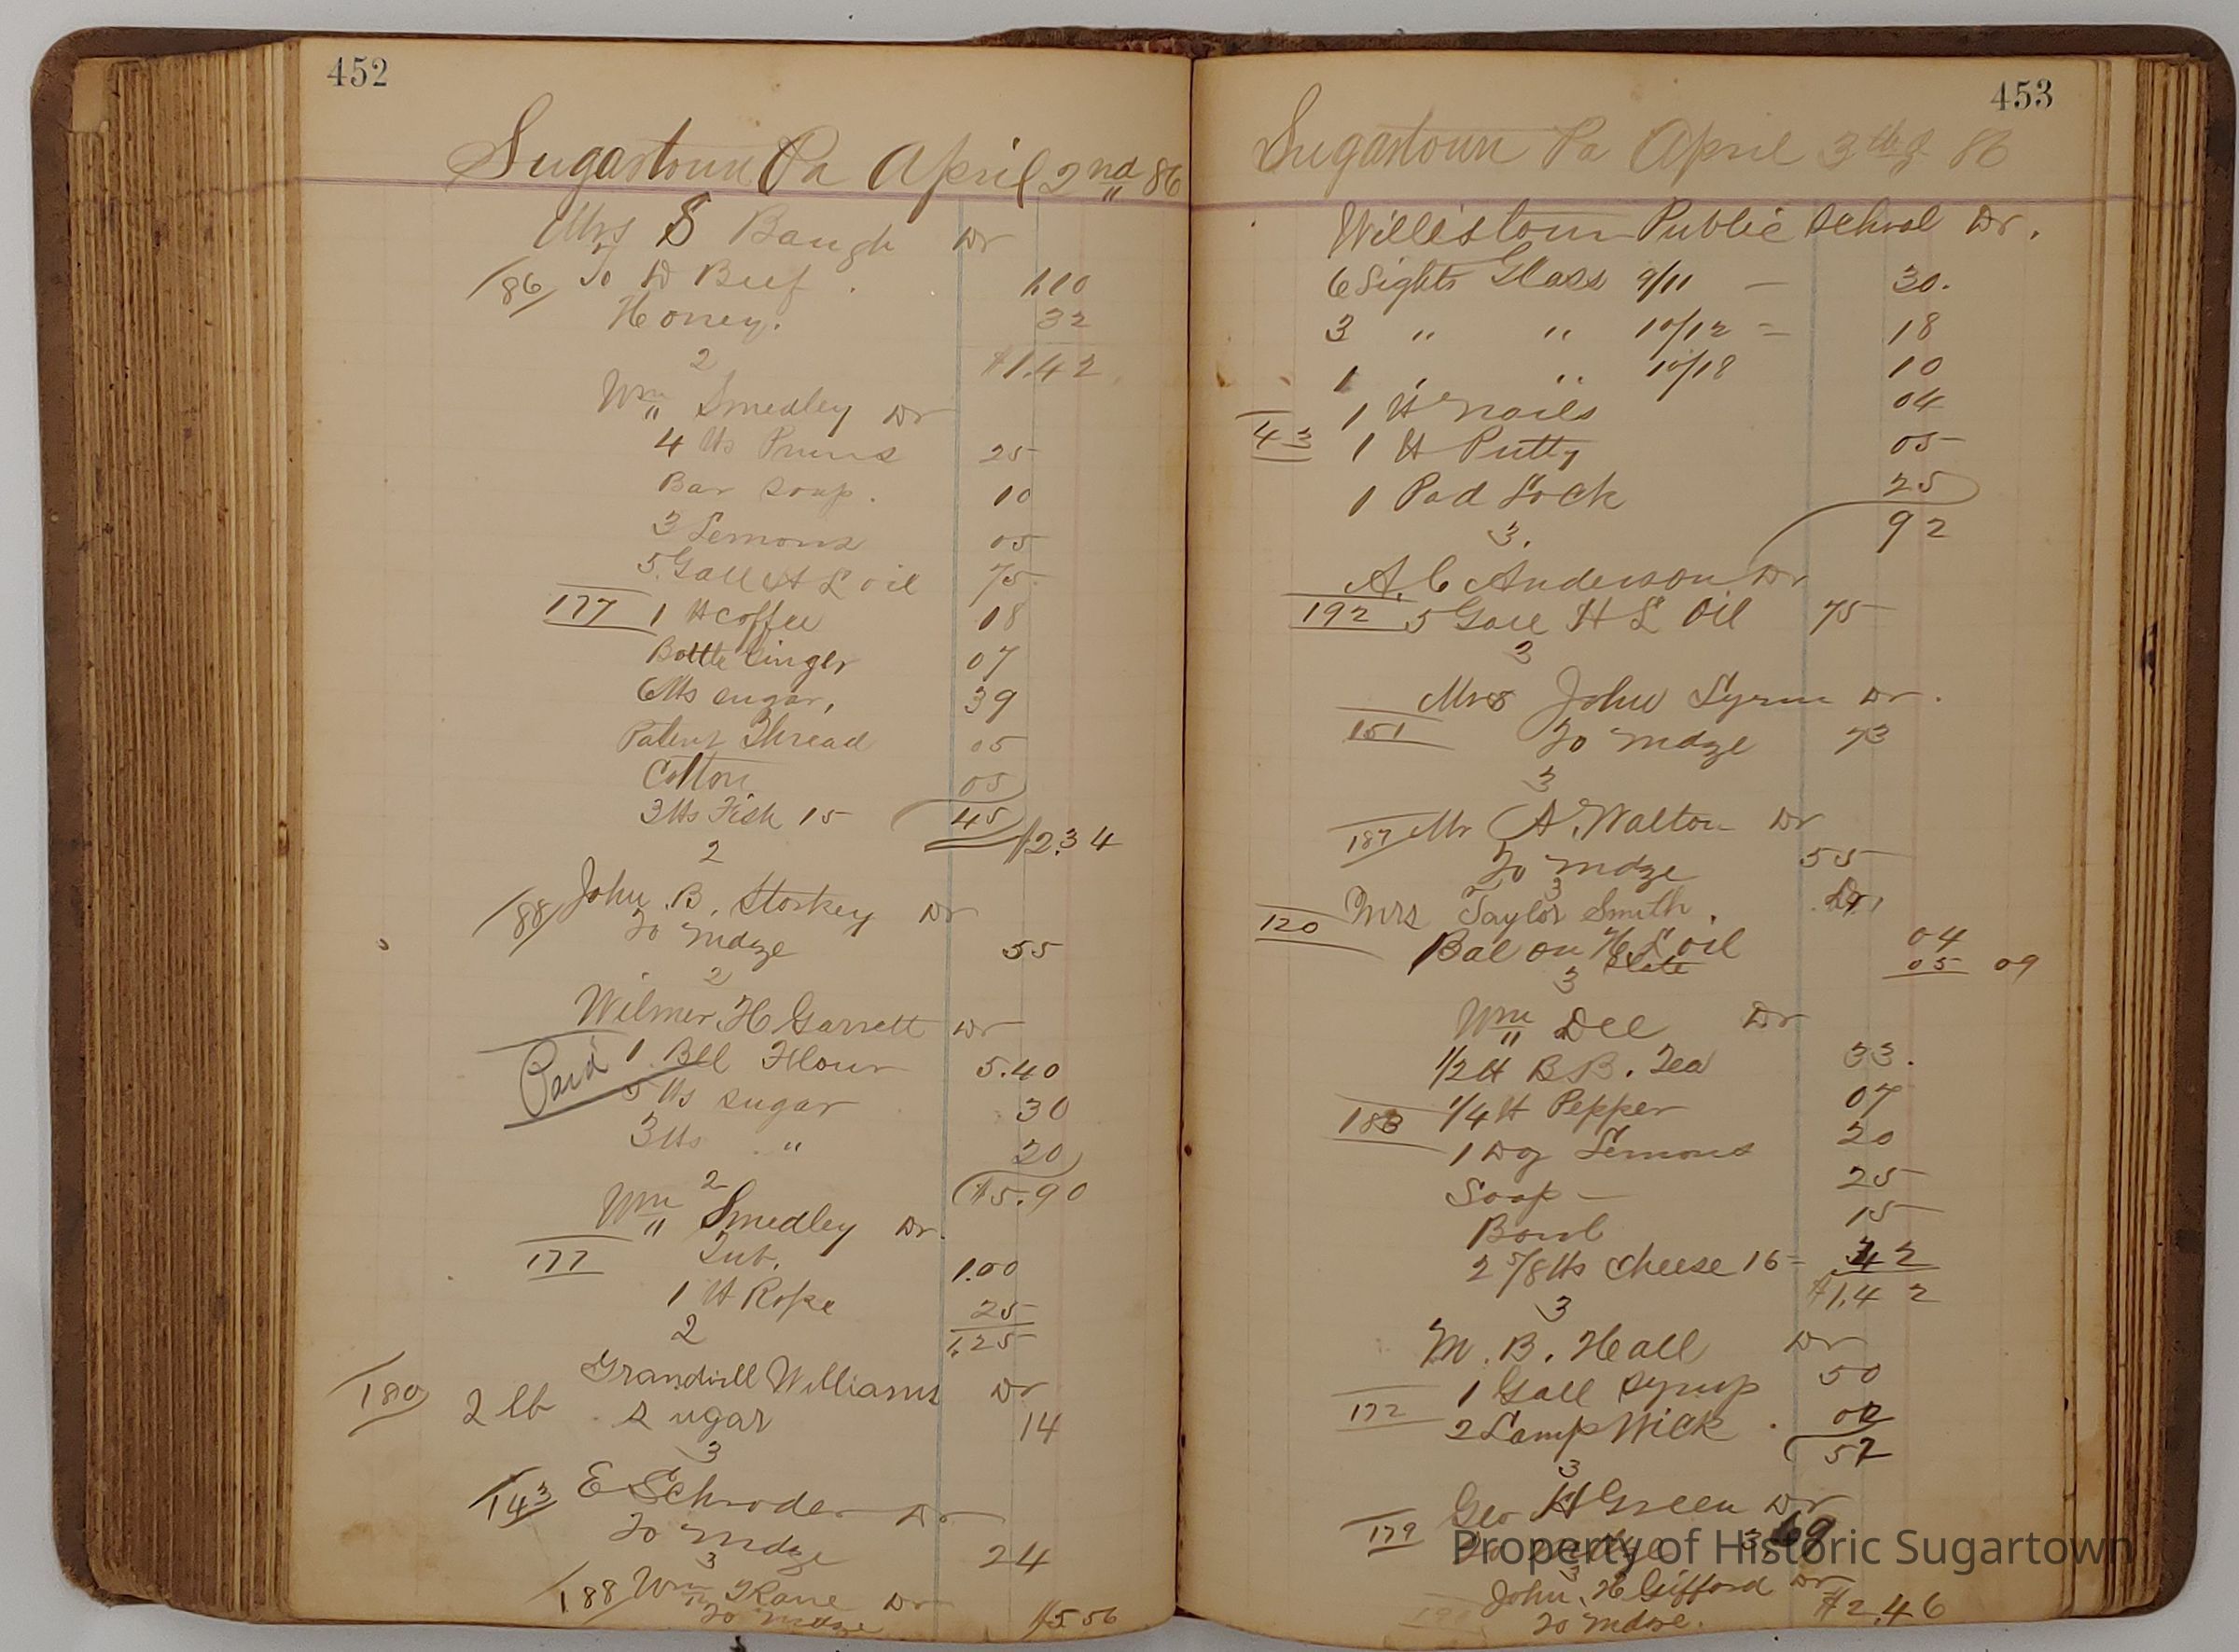 452
Sugartown Pa April 2nd 86
Mrs S Baugh Dr
186 To D Beef . 1.10
Honey. 32
2 $1.42
Wm Smedley Dr
4 lbs Pruns 25
Bar soap. 10
3 Lemons 05
5 Gall H L oil 75
177 1 lb coffee 18
Bottle Ginger 07
6 lbs sugar, 39
Patent Thread 05
Cotton 05
3 lbs Fish 15 45
$2.34
2
John B. Storkey Dr
188 To mdze 55
2
Wilmer H Garrett Dr
Paid 1 Bbl Flour 5.40
5 lbs sugar 30
3 lbs " 20
2 $5.90
Wm Smedley Dr.
177 Tub. 1.00
1 lb Rope 25
2 1.25
Grandvill Williams Dr
180 2 lb sugar 14
3
143 E Schroder Dr
To mdze 24
3
188 Wm Kane Dr
To mdze $5.56
453
Sugartown Pa April 3 86
Willistown Public School Dr.
6 Lights Glass 9/11 — 30.
3 " " 10/12 = 18
1 " " 10/18 10
1 lb nails 04
43 1 lb Putty 05
1 Pad Lock 25
3. 92
A. C Anderson Dr
192 5 Gall H L Oil 75
3
Mrs John Lynn Dr.
151 To mdze 73
3
187 Mr A. Walton Dr
To mdze 55
3
120 Mrs Taylor Smith. Dr
Bal on H L oil 04
Slate 05 09
3
Wm Dee Dr
1/2 lb B B. Tea 33.
183 1/4 lb Pepper 07
1 Doz Lemons 20
Soap — 25
Bowl 15
2 5/8 lbs cheese 16 = 42
3 $1.42
M. B. Heall Dr
1 Gall syrup 50
172 2 Lamp Wick . 02
52
3
Geo H Green Dr
179 To mdze
3
John H Gifford Dr
To mdze. $2.46
Property of Historic Sugartown